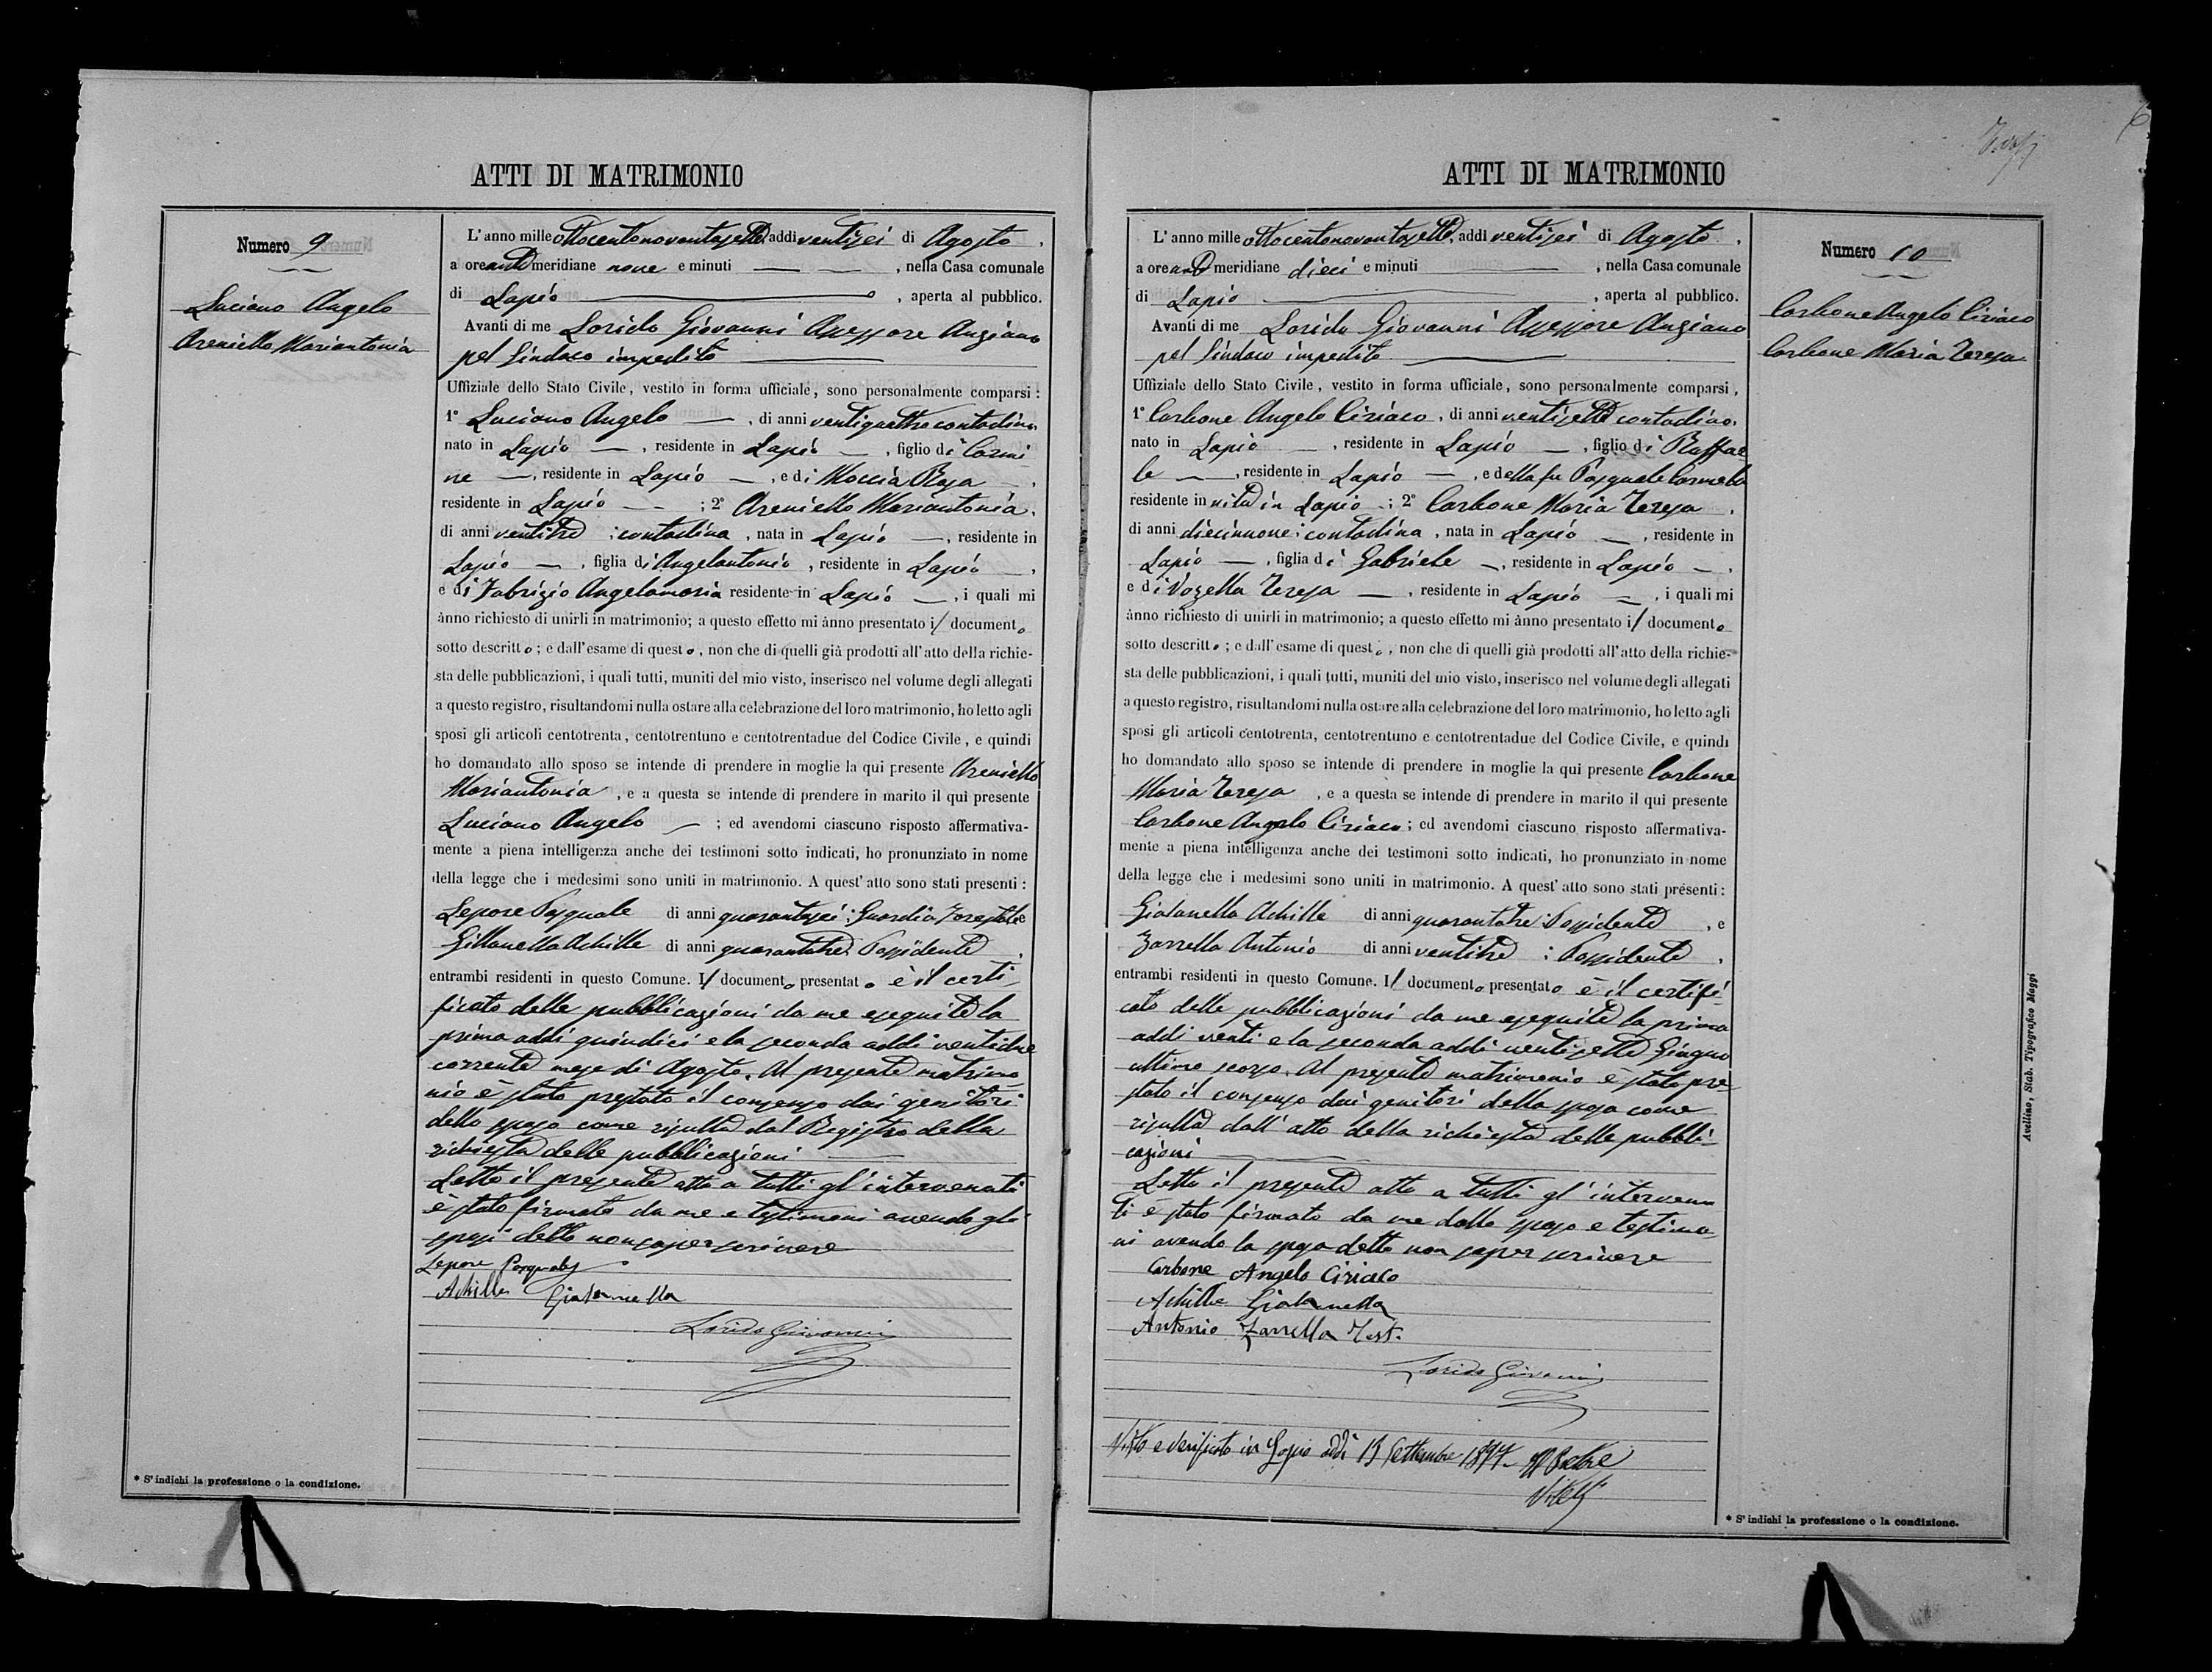 ATTI DI MATRIMONIO
Numero 9
Luciano Angelo
Areniello Mariantonia
L'anno mille ottocentonovantasette, addi ventisei di Agosto,
a ore anti meridiane nove e minuti , nella Casa comunale
di Lapio , aperta al pubblico.
Avanti di me Lorido Giovanni Assessore Anziano
pel Sindaco impedito
Uffiziale dello Stato Civile, vestito in forma ufficiale, sono personalmente comparsi:
1° Luciano Angelo , di anni ventiquattro contadino,
nato in Lapio , residente in Lapio , figlio di Carmi
ne , residente in Lapio , e di Moccia Rosa ,
residente in Lapio ; 2° Areniello Mariantonia,
di anni ventitre ; contadina , nata in Lapio , residente in
Lapio , figlia di Angelantonio , residente in Lapio ,
e di Fabrizio Angelamaria residente in Lapio , i quali mi
ànno richiesto di unirli in matrimonio; a questo effetto mi ànno presentato il documento
sotto descritto; e dall'esame di questo, non che di quelli già prodotti all'atto della richie-
sta delle pubblicazioni, i quali tutti, muniti del mio visto, inserisco nel volume degli allegati
a questo registro, risultandomi nulla ostare alla celebrazione del loro matrimonio, ho letto agli
sposi gli articoli centotrenta, centotrentuno e centotrentadue del Codice Civile, e quindi
ho domandato allo sposo se intende di prendere in moglie la qui presente Areniello
Mariantonia , e a questa se intende di prendere in marito il qui presente
Luciano Angelo ; ed avendomi ciascuno risposto affermativa-
mente a piena intelligenza anche dei testimoni sotto indicati, ho pronunziato in nome
della legge che i medesimi sono uniti in matrimonio. A quest'atto sono stati presenti:
Lepore Pasquale di anni quarantasei; Guardia Forestale e
Gittanella Achille di anni quarantatre Possidente ,
entrambi residenti in questo Comune. Il documento presentato è il certi
ficato delle pubblicazioni da me eseguite la
prima addi quindici e la seconda addi ventidue
corrente mese di Agosto. Al presente matrimo
nio è stato prestato il consenso dai genitori
dello sposo come risulta dal Registro della
richiesta delle pubblicazioni
Letto il presente atto a tutti gl'intervenuti
è stato firmato da me e testimoni avendo gli
sposi detto non saper scrivere
Lepore Pasquale
Achille Giatannella
Lorido Giovanni
* S'indichi la professione o la condizione.
ATTI DI MATRIMONIO
6
Numero 10
Carbone Angelo Ciriaco
Carbone Maria Teresa
L'anno mille ottocentonovantasette, addi ventisei di Agosto,
a ore anti meridiane dieci e minuti , nella Casa comunale
di Lapio , aperta al pubblico.
Avanti di me Lorido Giovanni Assessore Anziano
pel Sindaco impedito
Uffiziale dello Stato Civile, vestito in forma ufficiale, sono personalmente comparsi,
1° Carbone Angelo Ciriaco, di anni ventisette contadino,
nato in Lapio , residente in Lapio , figlio di Raffae
le , residente in Lapio , e della fu Pasquale Carmela
residente in vita in Lapio ; 2° Carbone Maria Teresa ,
di anni diecinnove; contadina , nata in Lapio , residente in
Lapio , figlia di Gabriele , residente in Lapio ,
e di Vozella Teresa , residente in Lapio , i quali mi
ànno richiesto di unirli in matrimonio; a questo effetto mi ànno presentato il documento
sotto descritto; e dall'esame di questo, non che di quelli già prodotti all'atto della richie-
sta delle pubblicazioni, i quali tutti, muniti del mio visto, inserisco nel volume degli allegati
a questo registro, risultandomi nulla ostare alla celebrazione del loro matrimonio, ho letto agli
sposi gli articoli centotrenta, centotrentuno e centotrentadue del Codice Civile, e quindi
ho domandato allo sposo se intende di prendere in moglie la qui presente Carbone
Maria Teresa , e a questa se intende di prendere in marito il qui presente
Carbone Angelo Ciriaco; ed avendomi ciascuno risposto affermativa-
mente a piena intelligenza anche dei testimoni sotto indicati, ho pronunziato in nome
della legge che i medesimi sono uniti in matrimonio. A quest'atto sono stati presenti:
Giatanella Achille di anni quarantatre; Possidente , e
Zarrella Antonio di anni ventitre ; Possidente ,
entrambi residenti in questo Comune. Il documento presentato è il certifi
cato delle pubblicazioni da me eseguite la prima
addi venti e la seconda addi ventisette Giugno
ultimo scorso. Al presente matrimonio è stato pre
stato il consenso dai genitori della sposa come
risulta dall'atto della richiesta delle pubbli
cazioni
Letto il presente atto a tutti gl'intervenu
ti è stato firmato da me dallo sposo e testimo
ni avendo la sposa detto non saper scrivere
Carbone Angelo Ciriaco
Achille Giatannella
Antonio Zarrella Test.
Lorido Giovanni
Visto e verificato in Lapio addì 13 Settembre 1897
* S'indichi la professione o la condizione.
Avellino, Stab. Tipografico Maggi